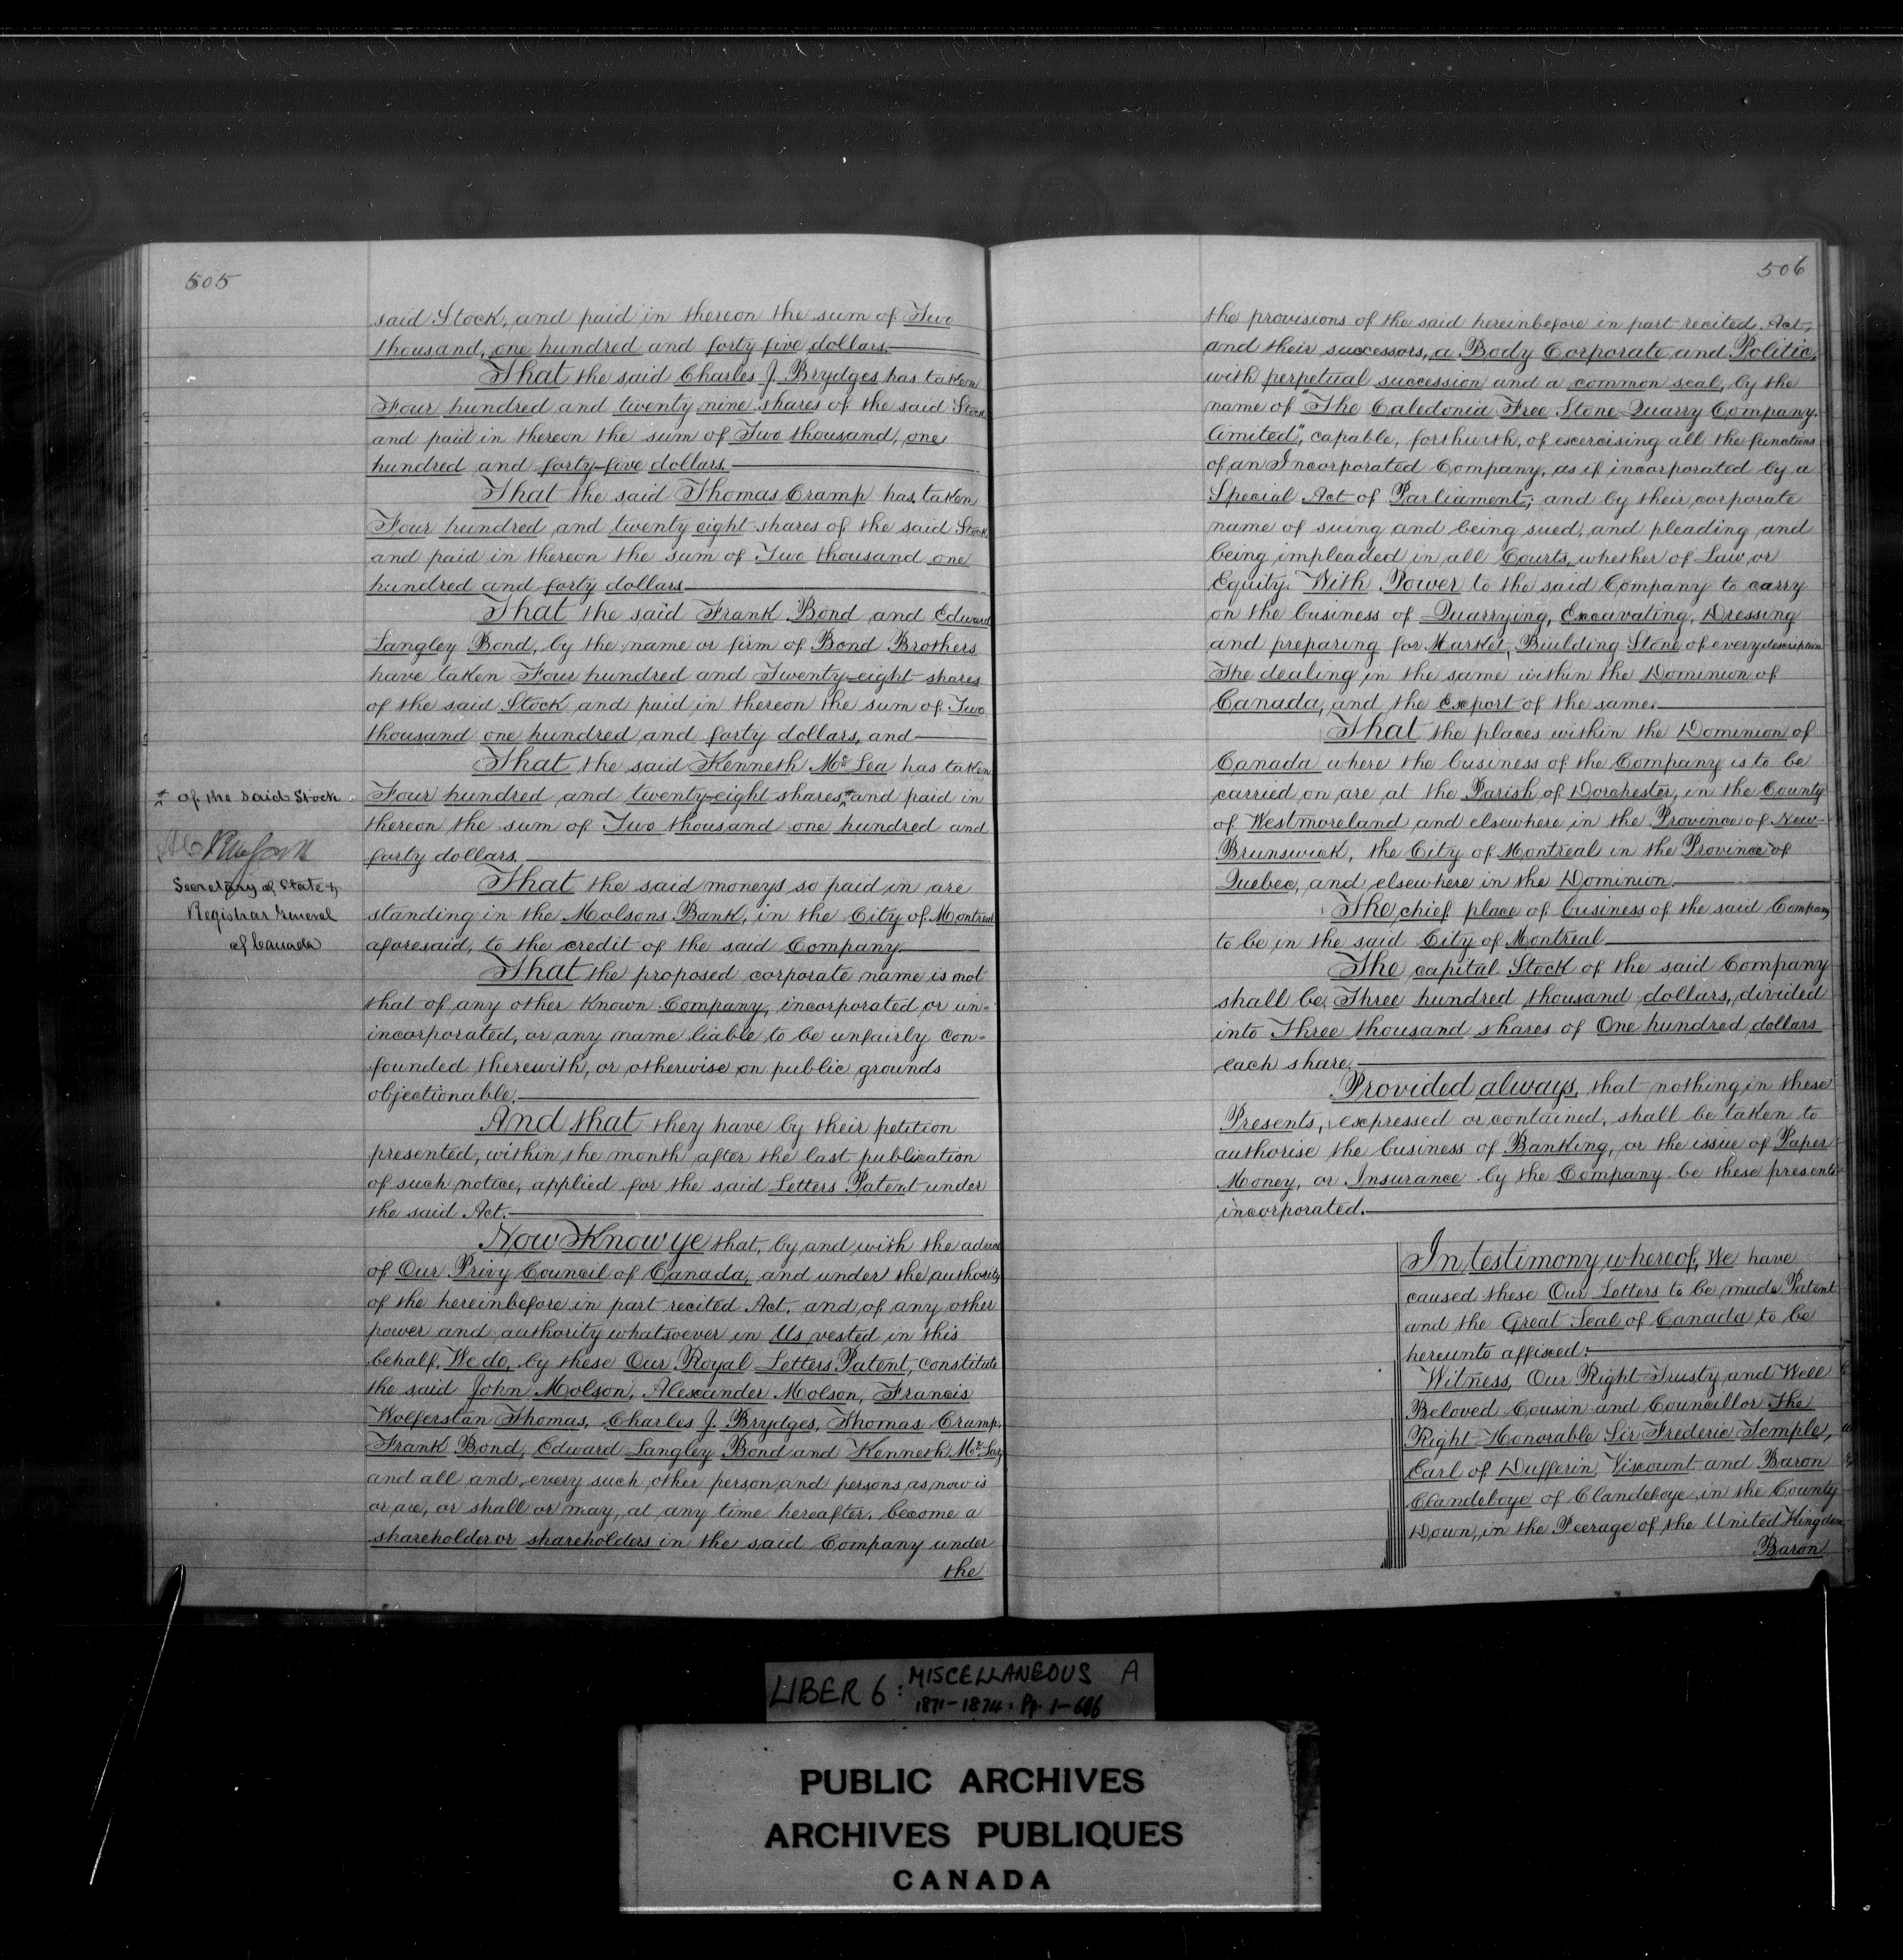 505
said Stock, and paid in thereon the sum of Two
thousand, one hundred and forty five dollars.
That the said Charles J. Brydges has taken
Four hundred and twenty nine shares of the said Stock
and paid in thereon the sum of Two thousand, one
hundred and forty-five dollars.
That the said Thomas Cramp has taken
Four hundred and twenty eight shares of the said Stock
and paid in thereon the sum of Two thousand one
hundred and forty dollars
That the said Frank Bond and Edward
Langley Bond, by the name or firm of Bond Brothers
have taken Four hundred and Twenty-eight shares
of the said Stock and paid in thereon the sum of Two
thousand one hundred and forty dollars, and
That the said Kenneth Mc Lea has taken
* of the said Stock
Four hundred and twenty-eight shares * and paid in
thereon the sum of Two thousand one hundred and
forty dollars.
Secretary of State &
Registrar General
of Canada
That the said moneys so paid in are
standing in the Molsons Bank, in the City of Montreal
aforesaid, to the credit of the said Company.
That the proposed corporate name is not
that of any other known Company, incorporated or un=
incorporated, or any name liable to be unfairly con=
founded therewith, or otherwise on public grounds
objectionable.
And that they have by their petition
presented, within the month after the last publication
of such notice, applied for the said Letters Patent under
the said Act.
Now Know ye that, by and with the advice
of Our Privy Council of Canada, and under the authority
of the hereinbefore in part recited Act, and of any other
power and authority whatsoever in Us vested in this
behalf, We do, by these Our Royal Letters Patent, constitute
the said John Molson, Alexander Molson, Francis
Wolferstan Thomas, Charles J. Brydges, Thomas Cramp,
Frank Bond, Edward Langley Bond and Kenneth Mc Lea,
and all and every such other person and persons as now is
or are, or shall or may, at any time hereafter, become a
shareholder or shareholders in the said Company under
the
506
the provisions of the said hereinbefore in part recited Act,
and their successors, a Body Corporate and Politic,
with perpetual succession and a common seal, by the
name of "The Caledonia Free Stone Quarry Company.
limited", capable, forthwith, of exercising all the functions
of an Incorporated Company, as if incorporated by a
Special Act of Parliament; and by their corporate
name of suing and being sued, and pleading and
being impleaded in all Courts, whether of Law or
Equity. With Power to the said Company to carry
on the business of Quarrying, Excavating, Dressing
and preparing for Market, Building Stone of every description
The dealing in the same within the Dominion of
Canada, and the Export of the same.
That the places within the Dominion of
Canada where the business of the Company is to be
carried on are at the Parish of Dorchester, in the County
of Westmoreland and elsewhere in the Province of New
Brunswick, the City of Montreal in the Province of
Quebec, and elsewhere in the Dominion.
The chief place of business of the said Company
to be in the said City of Montreal
The capital Stock of the said Company
shall be, Three hundred thousand dollars, divided
into Three thousand shares of One hundred dollars
each share.
Provided always, that nothing in these
Presents, expressed or contained, shall be taken to
authorise the business of Banking, or the issue of Paper
Money, or Insurance by the Company be these presents
incorporated.
In testimony whereof, We have
caused these Our Letters to be made Patent
and the Great Seal of Canada to be
hereunto affixed:
Witness, Our Right Trusty and Well
Beloved Cousin and Councillor The
Right Honorable Sir Frederic Temple,
Earl of Dufferin, Viscount and Baron
Clandeboye of Clandeboye, in the County
Down, in the Peerage of the United Kingdom
Baron
LIBER 6: MISCELLANEOUS A
1871-1874: Pp. 1-606
PUBLIC ARCHIVES
ARCHIVES PUBLIQUES
CANADA